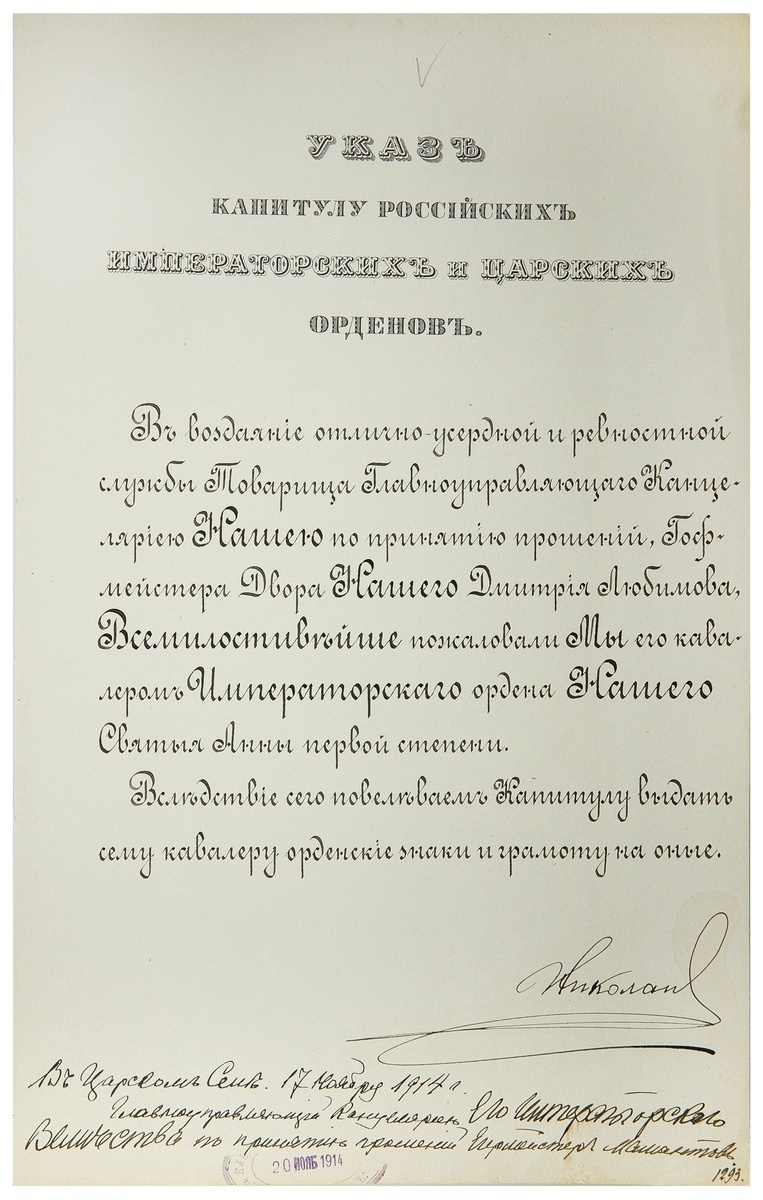 УКАЗЪ
КАПИТУЛУ РОССІЙСКИХЪ
ИМПЕРАТОРСКИХЪ И ЦАРСКИХЪ
ОРДЕНОВЪ.
Въ воздаяніе отлично-усердной и ревностной
службы Товарища Главноуправляющаго Канце-
ляріею Нашею по принятію прошеній, Гоф-
мейстера Двора Нашего Дмитрія Любимова,
Всемилостивѣйше пожаловали Мы его кава-
леромъ Императорскаго ордена Нашего
Святыя Анны первой степени.
Вслѣдствіе сего повелѣваемъ Капитулу выдать
сему кавалеру орденскіе знаки и грамоту на оные.
Николай
Въ Царскомъ Селѣ. 17 Ноября 1914 г.
Главноуправляющій Канцеляріею Его Императорскаго
Величества по принятію прошеній Егермейстеръ Мамантовъ
20 НОЯБ 1914
1293.